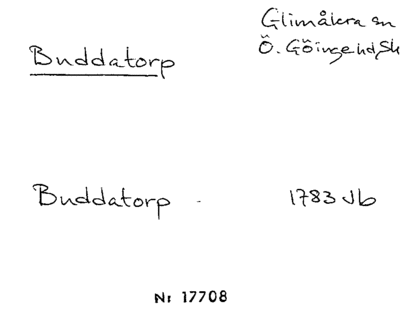 Glimåkra sn
Buddatorp Ö. Göinge hd, Sk
Buddatorp - 1783 Jb
Nr 17708